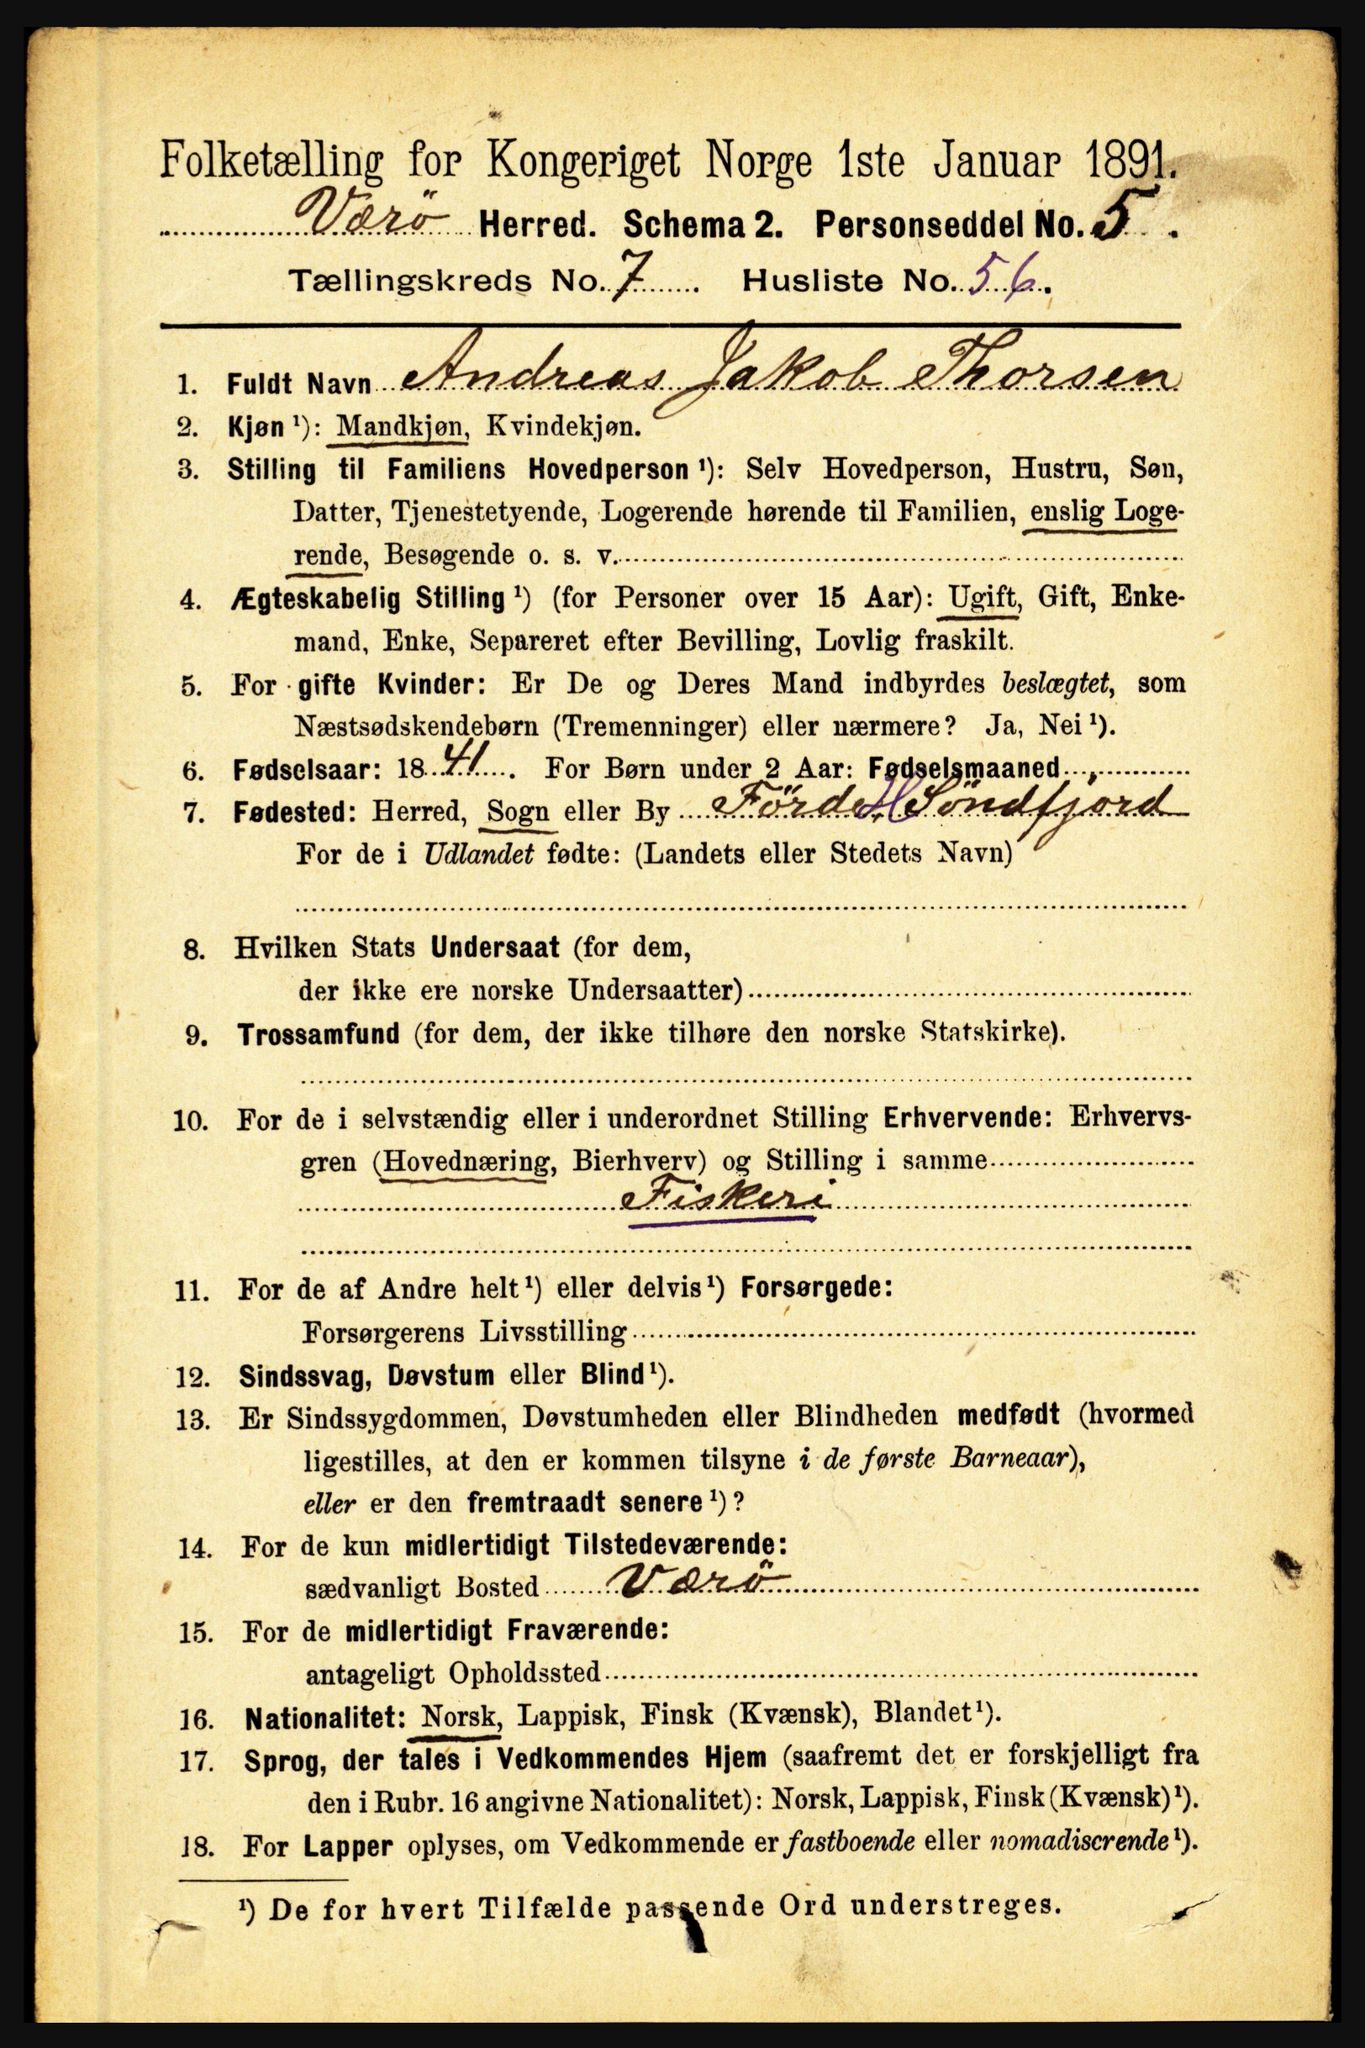 Folketælling for Kongeriget Norge 1ste Januar 1891.
Værö Herred. Schema 2. Personseddel No. 5.
Tællingskreds No. 7. Husliste No. 56.
1. Fuldt Navn Andreas Jakob Thorsen
2. Kjøn ¹): Mandkjøn, Kvindekjøn.
3. Stilling til Familiens Hovedperson ¹): Selv Hovedperson, Hustru, Søn,
Datter, Tjenestetyende, Logerende hørende til Familien, enslig Loge-
rende, Besøgende o. s. v.
4. Ægteskabelig Stilling ¹) (for Personer over 15 Aar): Ugift, Gift, Enke-
mand, Enke, Separeret efter Bevilling, Lovlig fraskilt.
5. For gifte Kvinder: Er De og Deres Mand indbyrdes beslægtet, som
Næstsødskendebørn (Tremenninger) eller nærmere? Ja, Nei ¹).
6. Fødselsaar: 1841. For Børn under 2 Aar: Fødselsmaaned
7. Fødested: Herred, Sogn eller By Förde H Söndfjord
For de i Udlandet fødte: (Landets eller Stedets Navn)
8. Hvilken Stats Undersaat (for dem,
der ikke ere norske Undersaatter)
9. Trossamfund (for dem, der ikke tilhøre den norske Statskirke).
10. For de i selvstændig eller i underordnet Stilling Erhvervende: Erhvervs-
gren (Hovednæring, Bierhverv) og Stilling i samme
Fiskeri
11. For de af Andre helt ¹) eller delvis ¹) Forsørgede:
Forsørgerens Livsstilling
12. Sindssvag, Døvstum eller Blind ¹).
13. Er Sindssygdommen, Døvstumheden eller Blindheden medfødt (hvormed
ligestilles, at den er kommen tilsyne i de første Barneaar),
eller er den fremtraadt senere ¹)?
14. For de kun midlertidigt Tilstedeværende:
sædvanligt Bosted Værö
15. For de midlertidigt Fraværende:
antageligt Opholdssted
16. Nationalitet: Norsk, Lappisk, Finsk (Kvænsk), Blandet ¹).
17. Sprog, der tales i Vedkommendes Hjem (saafremt det er forskjelligt fra
den i Rubr. 16 angivne Nationalitet): Norsk, Lappisk, Finsk (Kvænsk) ¹).
18. For Lapper oplyses, om Vedkommende er fastboende eller nomadiserende ¹).
¹) De for hvert Tilfælde passende Ord understreges.